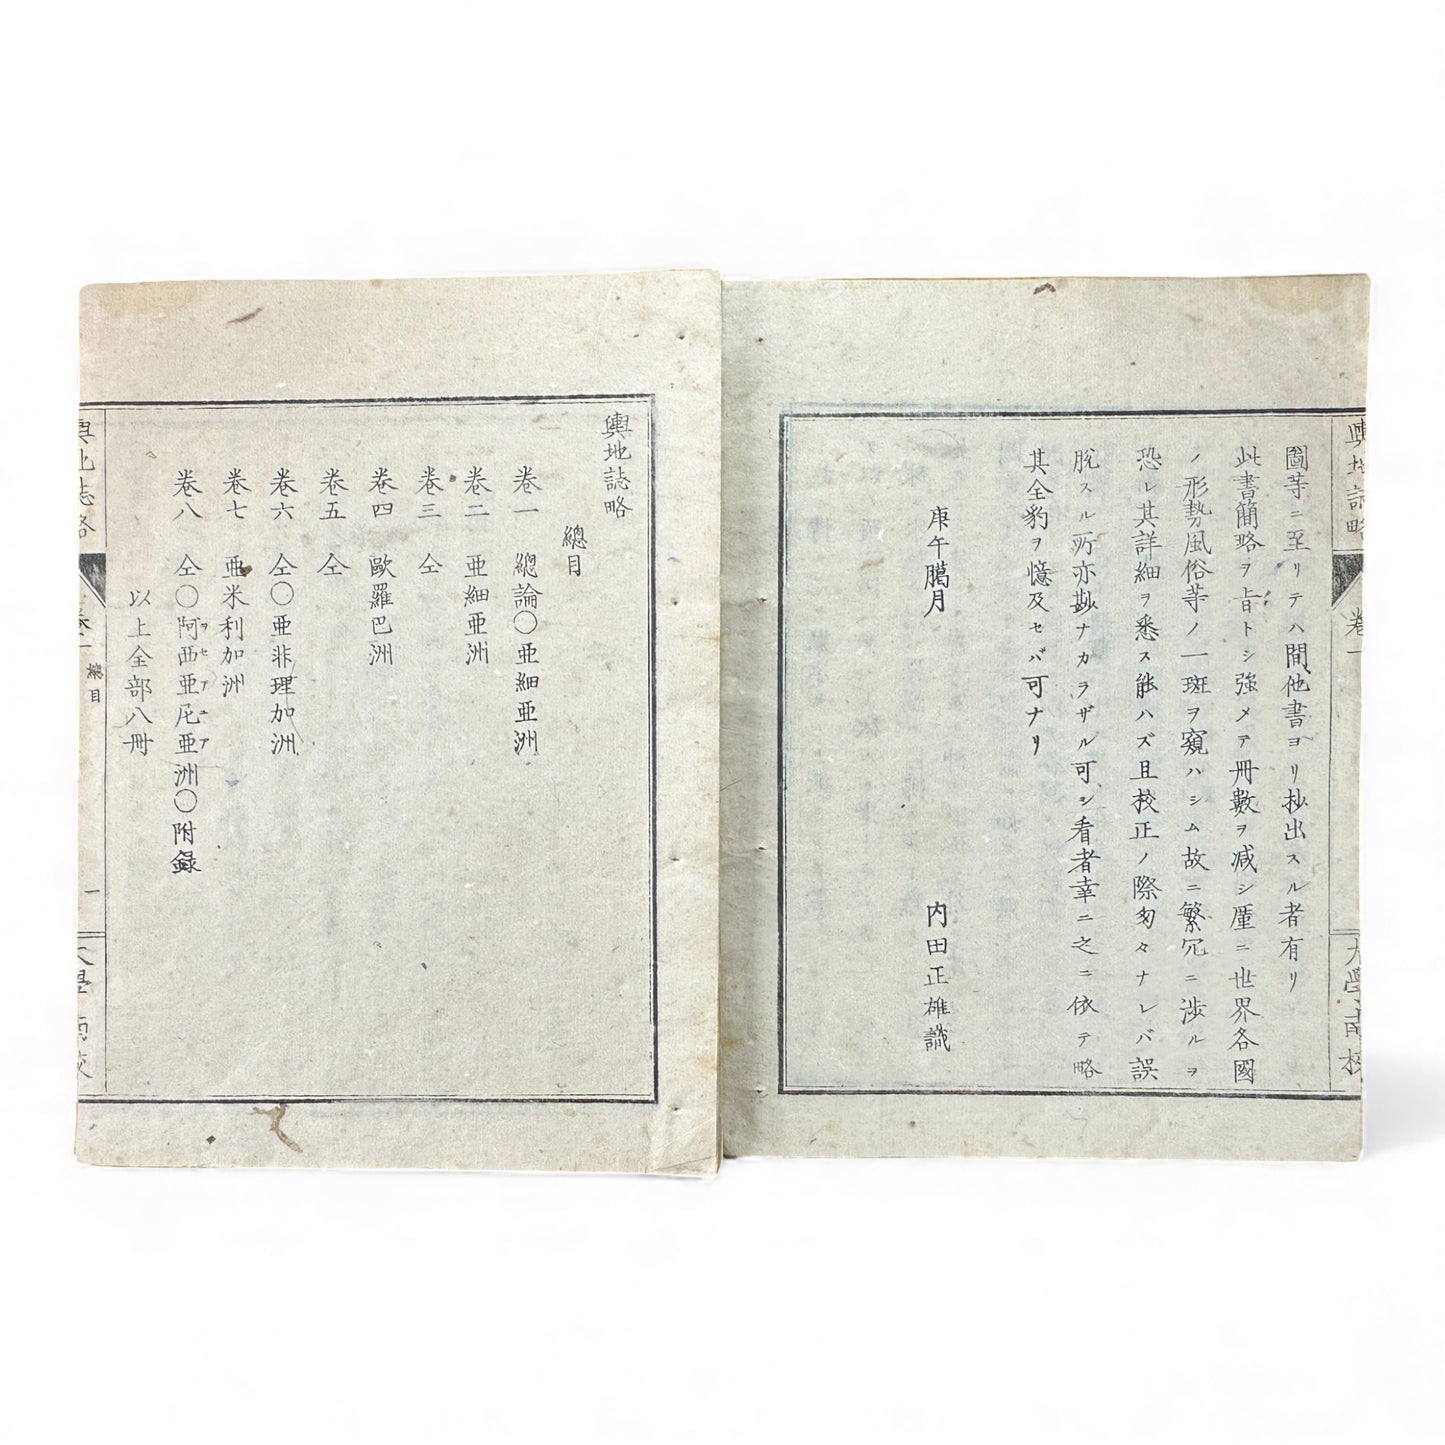 圖等ニ至リテハ間他書ヨリ抄出スル者有リ
此書簡略ヲ旨トシ強メテ冊數ヲ减シ厪ニ世界各國
ノ形勢風俗等ノ一斑ヲ窺ハシム故ニ繁冗ニ渉ルヲ
恐レ其詳細ヲ悉ス能ハズ且校正ノ際匆々ナレバ誤
脫スル所亦尠ナカラザル可シ看者幸ニ之ニ依テ略
其全豹ヲ憶及セバ可ナリ
庚午臈月
内田正雄識
輿地誌略
卷一
大學南校
輿地誌略
總目
卷一 總論〇亜細亜洲
卷二 亜細亜洲
卷三 仝
卷四 歐羅巴洲
卷五 仝
卷六 仝〇亜非理加洲
卷七 亜米利加洲
卷八 仝〇阿西亜尼亜洲〇附録
ヲセアニア
以上全部八冊
輿地誌略
卷一
總目
一
大學南校